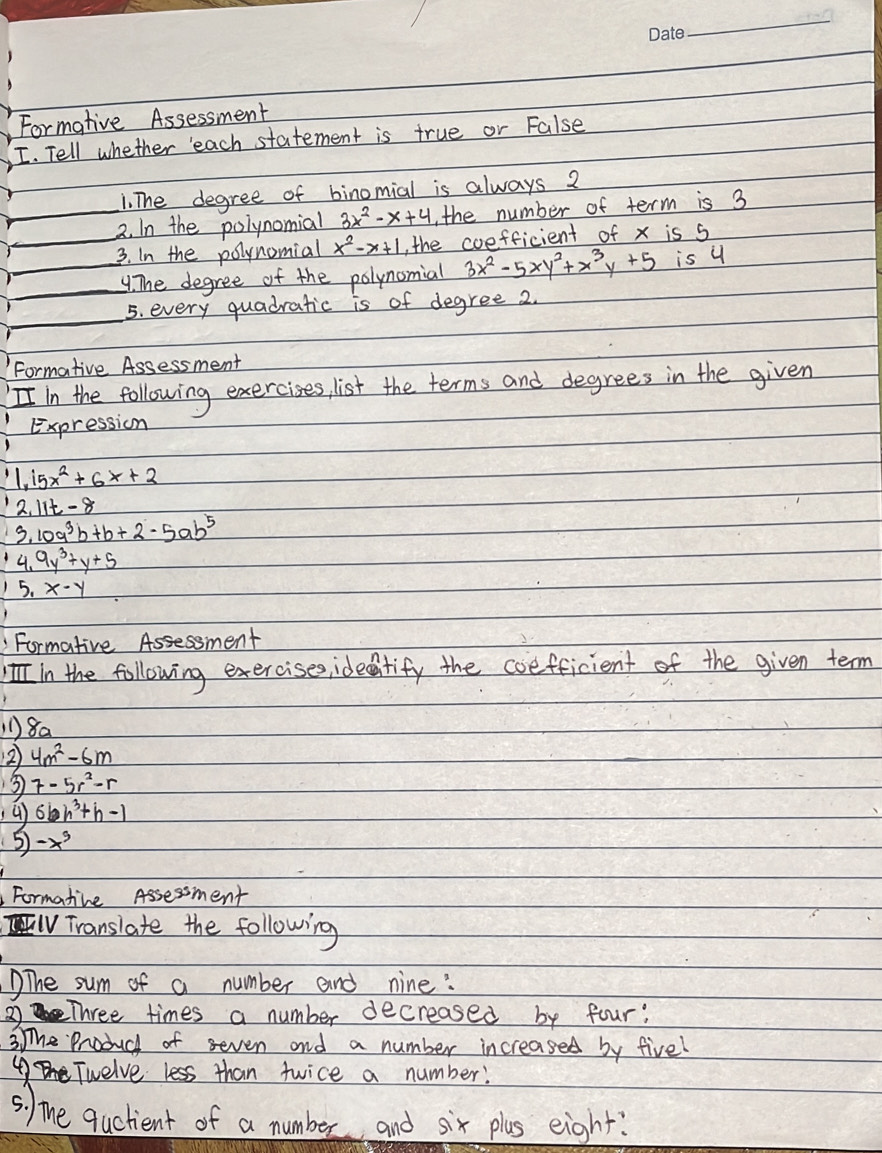 Date
Formative Assessment
I. Tell whether each statement is true or False
1. The degree of binomial is always 2
2. In the polynomial 3x² - x + 4, the number of term is 3
3. In the polynomial x² - x + 1, the coefficient of x is 5
4. The degree of the polynomial 3x² - 5xy² + x³y + 5 is 4
5. every quadratic is of degree 2.
Formative Assessment
II In the following exercises, list the terms and degrees in the given
Expression
1. 15x² + 6x + 2
2. 11t - 8
3. 10a³b + b + 2 - 5ab⁵
4. 9y³ + y + 5
5. x - y
Formative Assessment
III In the following exercises, identify the coefficient of the given term
1) 8a
2) 4m² - 6m
3) 7 - 5r² - r
4) 6h³ + h - 1
5) -x³
Formative Assessment
IV Translate the following
1) The sum of a number and nine:
2) Three times a number decreased by four:
3) The Product of seven and a number increased by five:
4) Twelve less than twice a number:
5.) The quctient of a number and six plus eight: